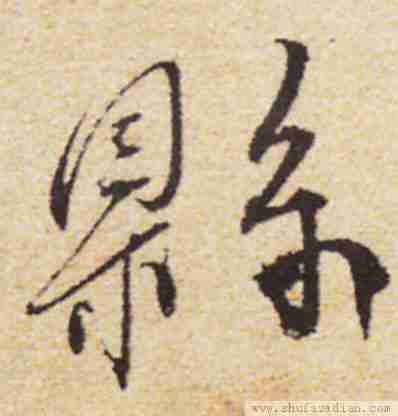 縣
www.shufazidian.com